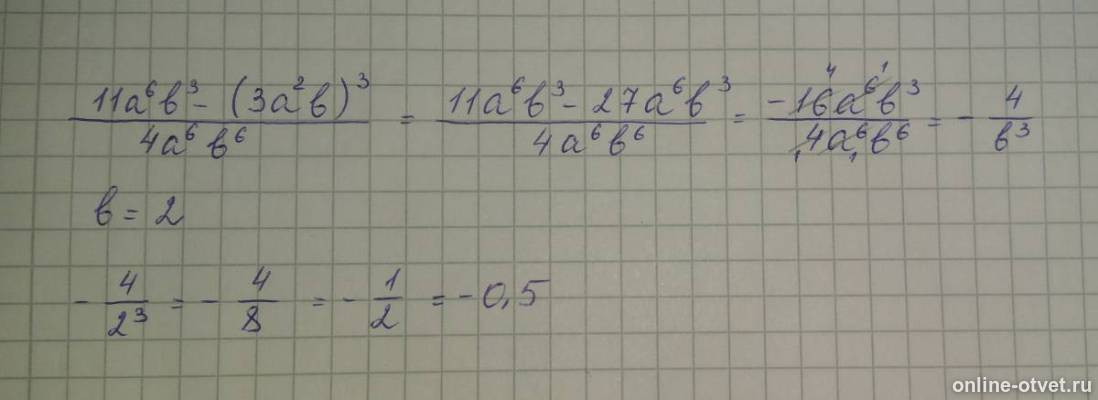 11a⁶b³ - (3a²b)³ / 4a⁶b⁶ = 11a⁶b³ - 27a⁶b³ / 4a⁶b⁶ = -16a⁶b³ / 4a⁶b⁶ = - 4 / b³
b = 2
- 4 / 2³ = - 4 / 8 = - 1 / 2 = - 0,5
online-otvet.ru